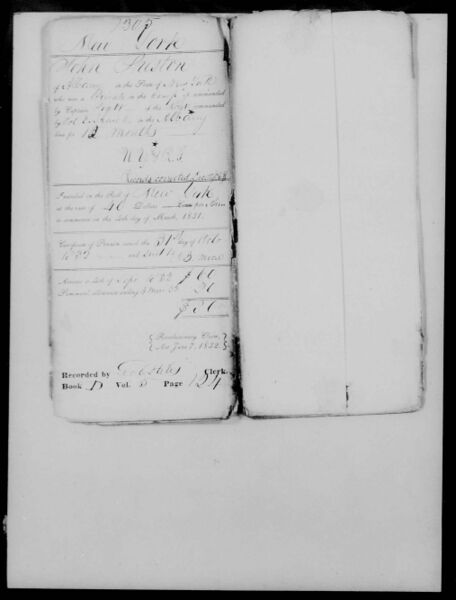 1305
New York
John Huston
of Albany in the State of New York
who was a Private in the comp'y commanded
by Captain of the Regt commanded
by Col. in the Albany
line for 12 months
Inscribed on the Roll of New York
at the rate of 40 Dollars Cents per Annum
to commence on the 4th day of March, 1831.
Certificate of Pension issued the 31st day of Octo
1832 and sent to
Arrears to 4th of Sept 1832 $ 60
Semi-anl. allowance ending 4 Mar 33 20
$ 80
Revolutionary Claim,
Act June 7, 1832.
Recorded by Clerk,
Book D Vol. 5 Page 124